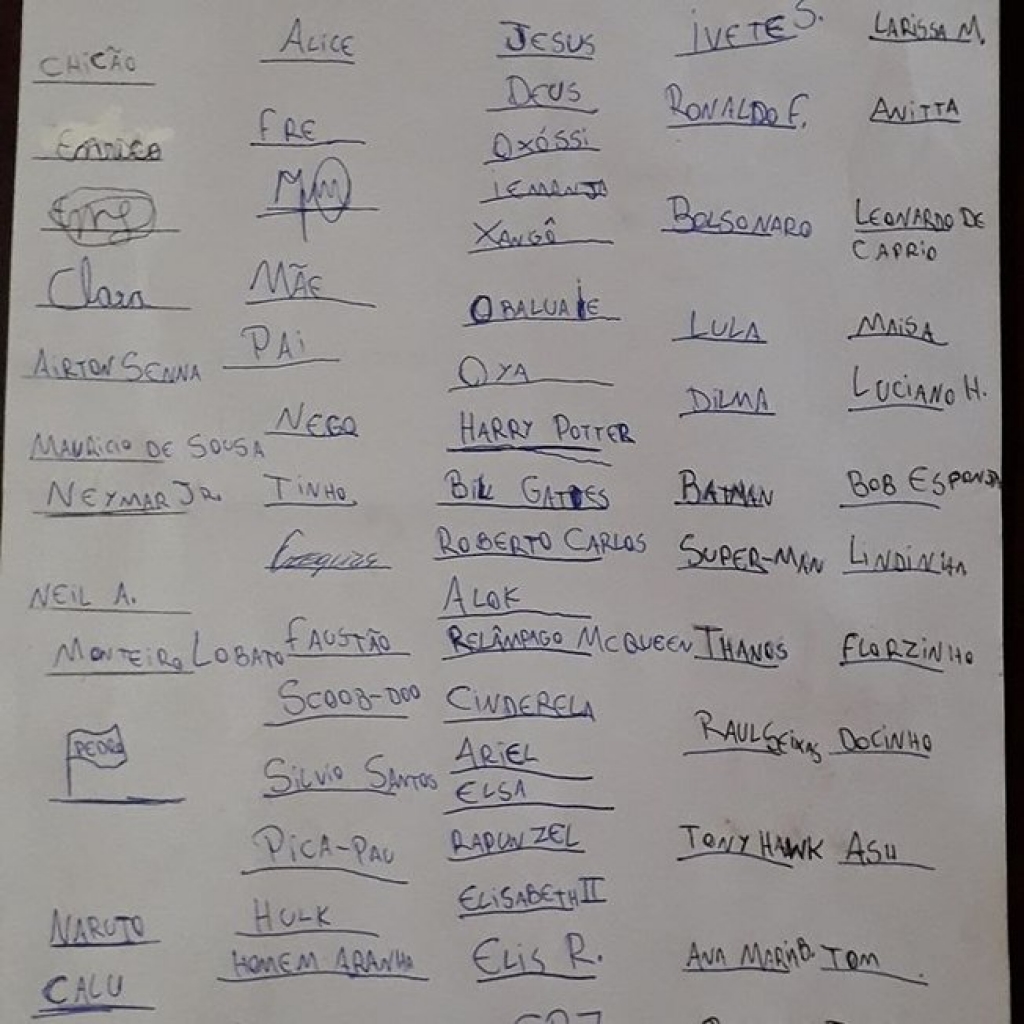 CHICÃO
Clara
AIRTON SENNA
MAURICIO DE SOUSA
NEYMAR JR.
NEIL A.
MONTEIRO LOBATO
PEDRO
NARUTO
CALU
ALICE
FRE
MÃE
PAI
NEGO
TINHO
Ezequias
FAUSTÃO
SCOOB-DOO
SILVIO SANTOS
PICA-PAU
HULK
HOMEM ARANHA
JESUS
DEUS
OXÓSSI
IEMANJA
XANGÔ
OBALUAIE
OYA
HARRY POTTER
BILL GATES
ROBERTO CARLOS
ALOK
RELÂMPAGO MCQUEEN
CINDERELA
ARIEL
ELSA
RAPUNZEL
ELISABETH II
ELIS R.
IVETE S.
RONALDO F.
BOLSONARO
LULA
DILMA
BATMAN
SUPER-MAN
THANOS
RAUL SEIXAS
TONY HAWK
ANA MARIA B.
LARISSA M.
ANITTA
LEONARDO DE
CAPRIO
MAISA
LUCIANO H.
BOB ESPONJA
LINDINHA
FLORZINHO
DOCINHO
ASH
TOM